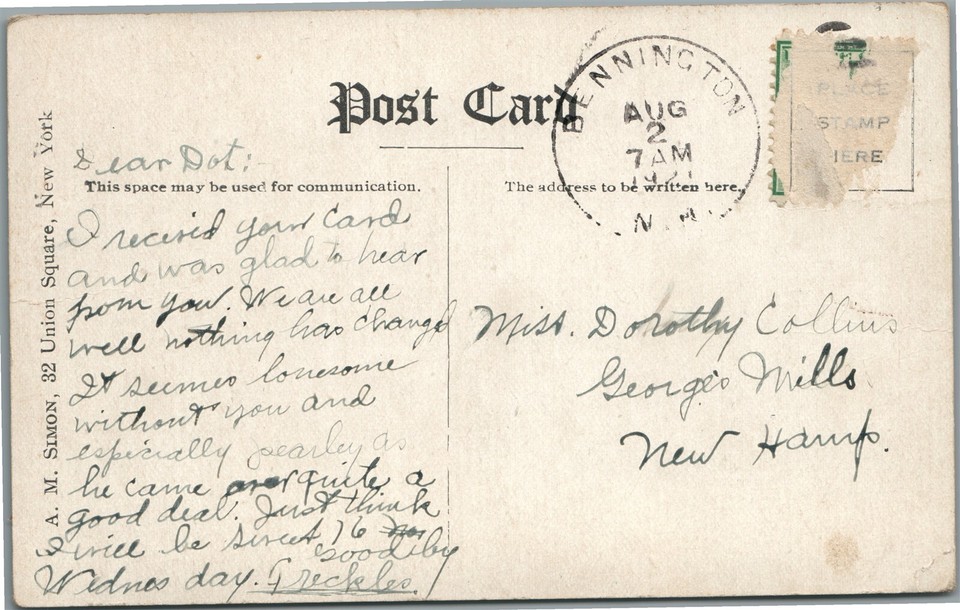 Post Card
BENNINGTON
AUG
2
7 AM
1921
N.H.
PLACE
STAMP
HERE
This space may be used for communication.
The address to be written here.
A. M. SIMON, 32 Union Square, New York
Dear Dot:-
I receivd your card
and was glad to hear
from you. We are all
well nothing has changd
It seemes lonesome
without you and
especially pearley as
he came over quite a
good deal. Just think
I will be sweet 16
Wednes day. Goodby
Freckles.
Miss. Dorothy Collins
George's Mills
New Hamp.